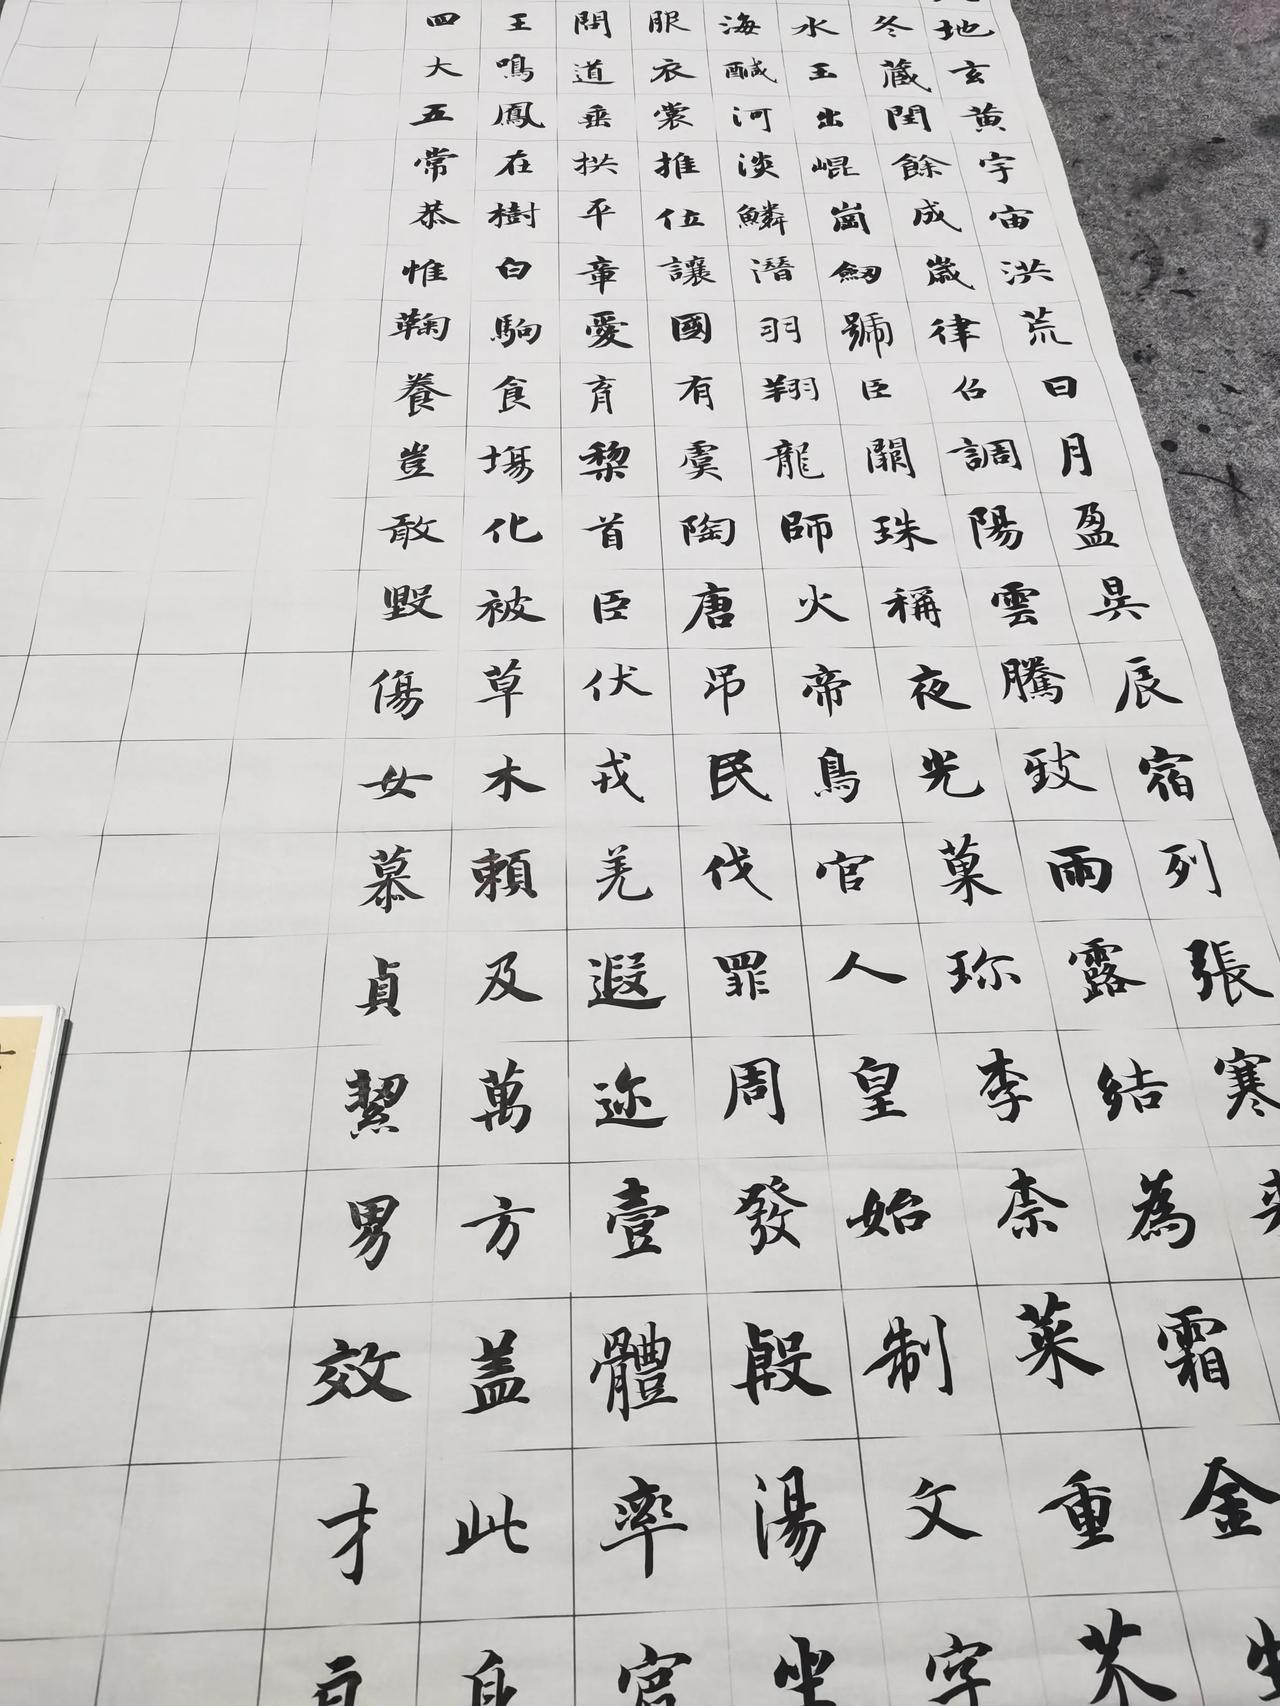 地玄黄宇宙洪荒日月盈昃辰宿列張寒
冬蔵閏餘成歲律召調陽雲騰致雨露結為霜金
水玉出崐崗劒號臣關珠稱夜光菓珎李柰菜重芥
海鹹河淡鱗潛羽翔龍師火帝鳥官人皇始制文字
服衣裳推位讓國有虞陶唐吊民伐罪周發殷湯坐
問道垂拱平章愛育黎首臣伏戎羌遐迩壹體率賓
王鳴鳳在樹白駒食場化被草木賴及萬方盖此身
四大五常恭惟鞠養豈敢毀傷女慕貞絜男效才